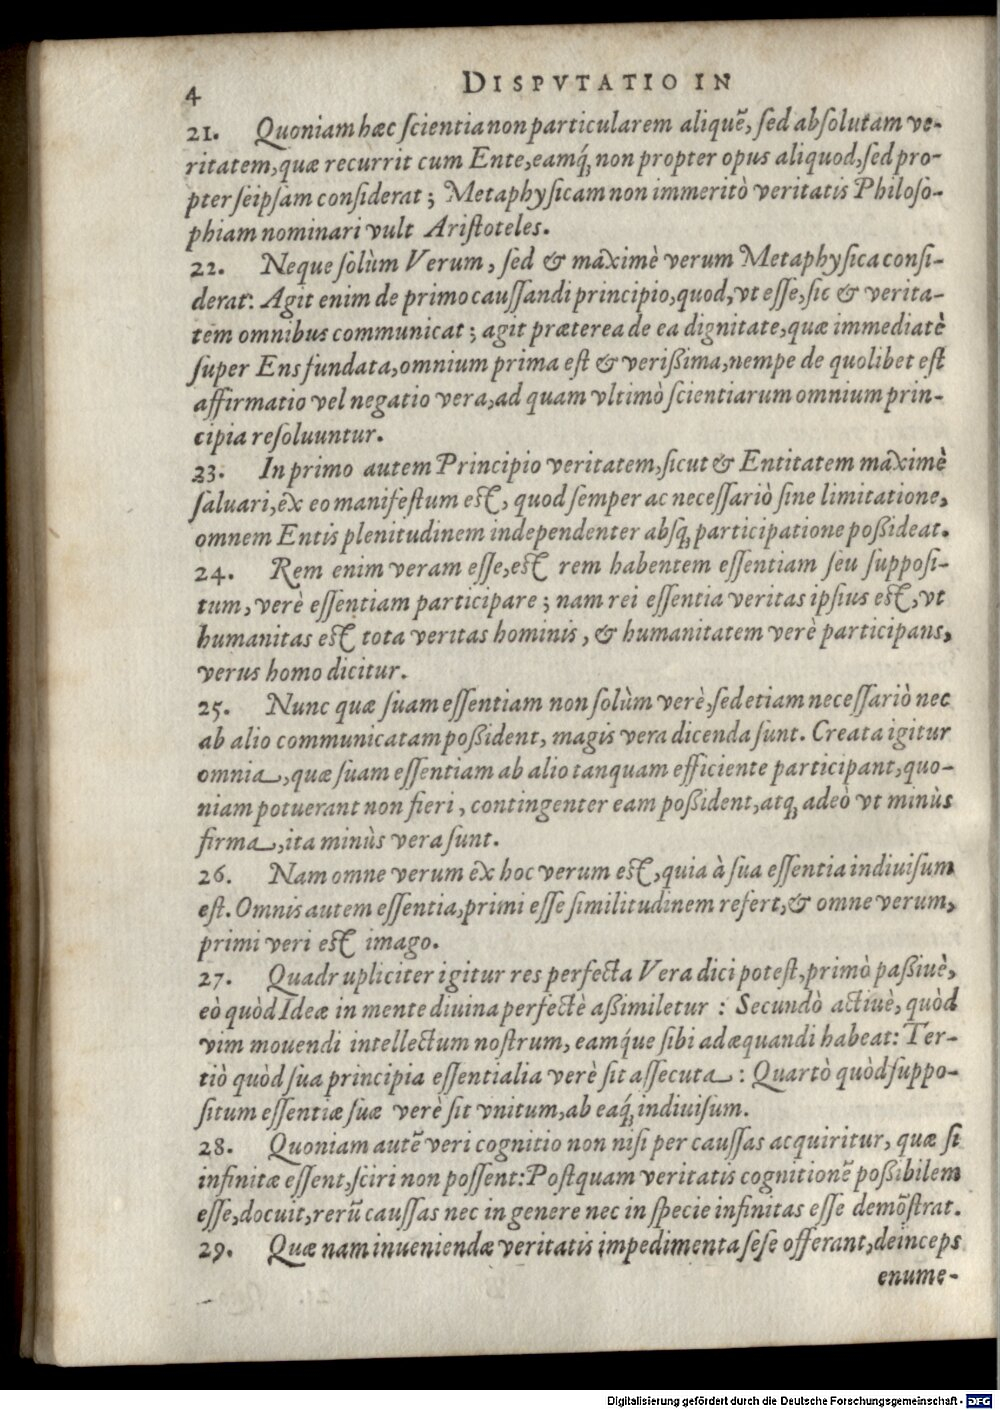 4 DISPVTATIO IN
21. Quoniam hæc ſcientia non particularem aliquẽ, ſed abſolutam ve-
ritatem, quæ recurrit cum Ente, eamq́ꝫ non propter opus aliquod, ſed pro-
pter ſeipſam conſiderat; Metaphyſicam non immeritò veritatis Philoſo-
phiam nominari vult Ariſtoteles.
22. Neque ſolùm Verum, ſed & maximè verum Metaphyſica conſi-
derat: Agit enim de primo cauſſandi principio, quod, vt eſſe, ſic & verita-
tem omnibus communicat; agit præterea de ea dignitate, quæ immediatè
ſuper Ens fundata, omnium prima eſt & verißima, nempe de quolibet eſt
affirmatio vel negatio vera, ad quam vltimò ſcientiarum omnium prin-
cipia reſoluuntur.
23. In primo autem Principio veritatem, ſicut & Entitatem maximè
ſaluari, ex eo manifeſtum eſt, quod ſemper ac neceſſariò ſine limitatione,
omnem Entis plenitudinem independenter abſqꝫ participatione poßideat.
24. Rem enim veram eſſe, eſt rem habentem eſſentiam ſeu ſuppoſi-
tum, verè eſſentiam participare; nam rei eſſentia veritas ipſius eſt, vt
humanitas eſt tota veritas hominis, & humanitatem verè participans,
verus homo dicitur.
25. Nunc quæ ſuam eſſentiam non ſolùm verè, ſed etiam neceſſariò nec
ab alio communicatam poßident, magis vera dicenda ſunt. Creata igitur
omnia, quæ ſuam eſſentiam ab alio tanquam efficiente participant, quo-
niam potuerant non fieri, contingenter eam poßident, atqꝫ adeò vt minùs
firma, ita minùs vera ſunt.
26. Nam omne verum ex hoc verum eſt, quia à ſua eſſentia indiuiſum
eſt. Omnis autem eſſentia, primi eſſe ſimilitudinem refert, & omne verum,
primi veri eſt imago.
27. Quadrupliciter igitur res perfecta Vera dici poteſt, primò paßiuè,
eò quòd Ideæ in mente diuina perfectè aßimiletur : Secundò actiuè, quòd
vim mouendi intellectum noſtrum, eamq́ue ſibi adæquandi habeat: Ter-
tiò quòd ſua principia eſſentialia verè ſit aſſecuta : Quartò quòd ſuppo-
ſitum eſſentiæ ſuæ verè ſit vnitum, ab eaq́ꝫ indiuiſum.
28. Quoniam autẽ veri cognitio non niſi per cauſſas acquiritur, quæ ſi
infinitæ eſſent, ſciri non poſſent: Poſtquam veritatis cognitionẽ poßibilem
eſſe, docuit, rerũ cauſſas nec in genere nec in ſpecie infinitas eſſe demõſtrat.
29. Quæ nam inueniendæ veritatis impedimenta ſeſe offerant, deinceps
enume-
Digitalisierung gefördert durch die Deutsche Forschungsgemeinschaft - DFG